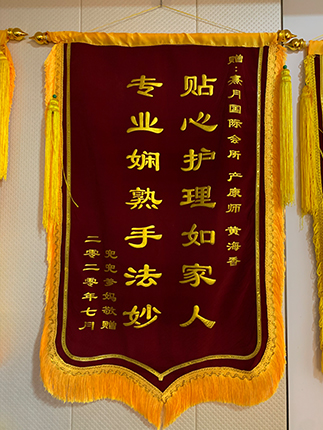 赠:熹月国际会所 产康师 黄海香
贴心护理如家人
专业娴熟手法妙
兜兜爹妈敬赠
二零二零年七月